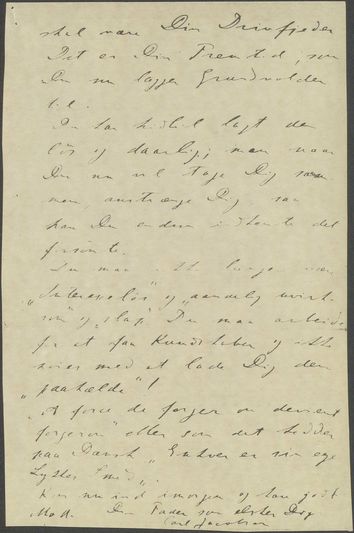 skal være Din Drivfjeder
Det er Din Fremtid, som
Du nu lægger Grundvolden
til.
Du har hidtil lagt den
løs og daarlig; men naar
Du nu vil tage Dig sammen,
anstrænge Dig, saa
kan Du endnu indhente det
forsømte.
Du maa ikke længer være
"Interesseløs" og "aandelig
og "slap". Du maa arbeide
for at faa Kundskaber og ikke
nøies med at lade Dig dem
"paahælde"!
"A force de forger on devient
forgeron" eller som det hedder
paa Dansk "Enhver er sin egen
Lykkes Smed".
nu ind imorgen og hav godt
Mod. Din Fader som elsker Dig
Carl Jacobsen